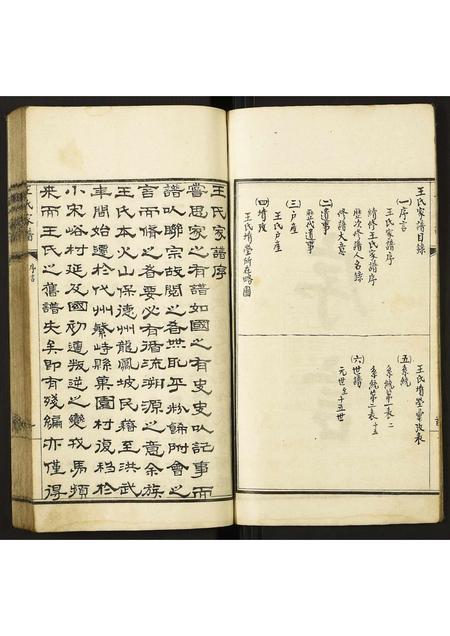 王氏家譜目錄
㈠序言
王氏家譜序
續修王氏家譜序
歷次修譜人名錄
修譜大意
㈡遺事
歷代遺事
㈢戶產
王氏戶產
㈣墳塋
王氏墳塋所在略圖
王氏墳塋
㈤系統
系統第一表
系統第二表
㈥世譜
元世至十五世
王氏家譜序
嘗思家之有譜如國之有史史以記事而
譜以聯宗故閱之者無取乎粉飾附會之
言而修之者要必有循流溯源之意余族
王氏本火山保德州龍鳳坡民籍至洪武
年間始遷於代州繁峙縣菓園村復移於
小宋峪村延及國初遭叛逆之變戎馬頻
來而王氏之舊譜失矣即有殘編亦僅得
王氏家譜
序言